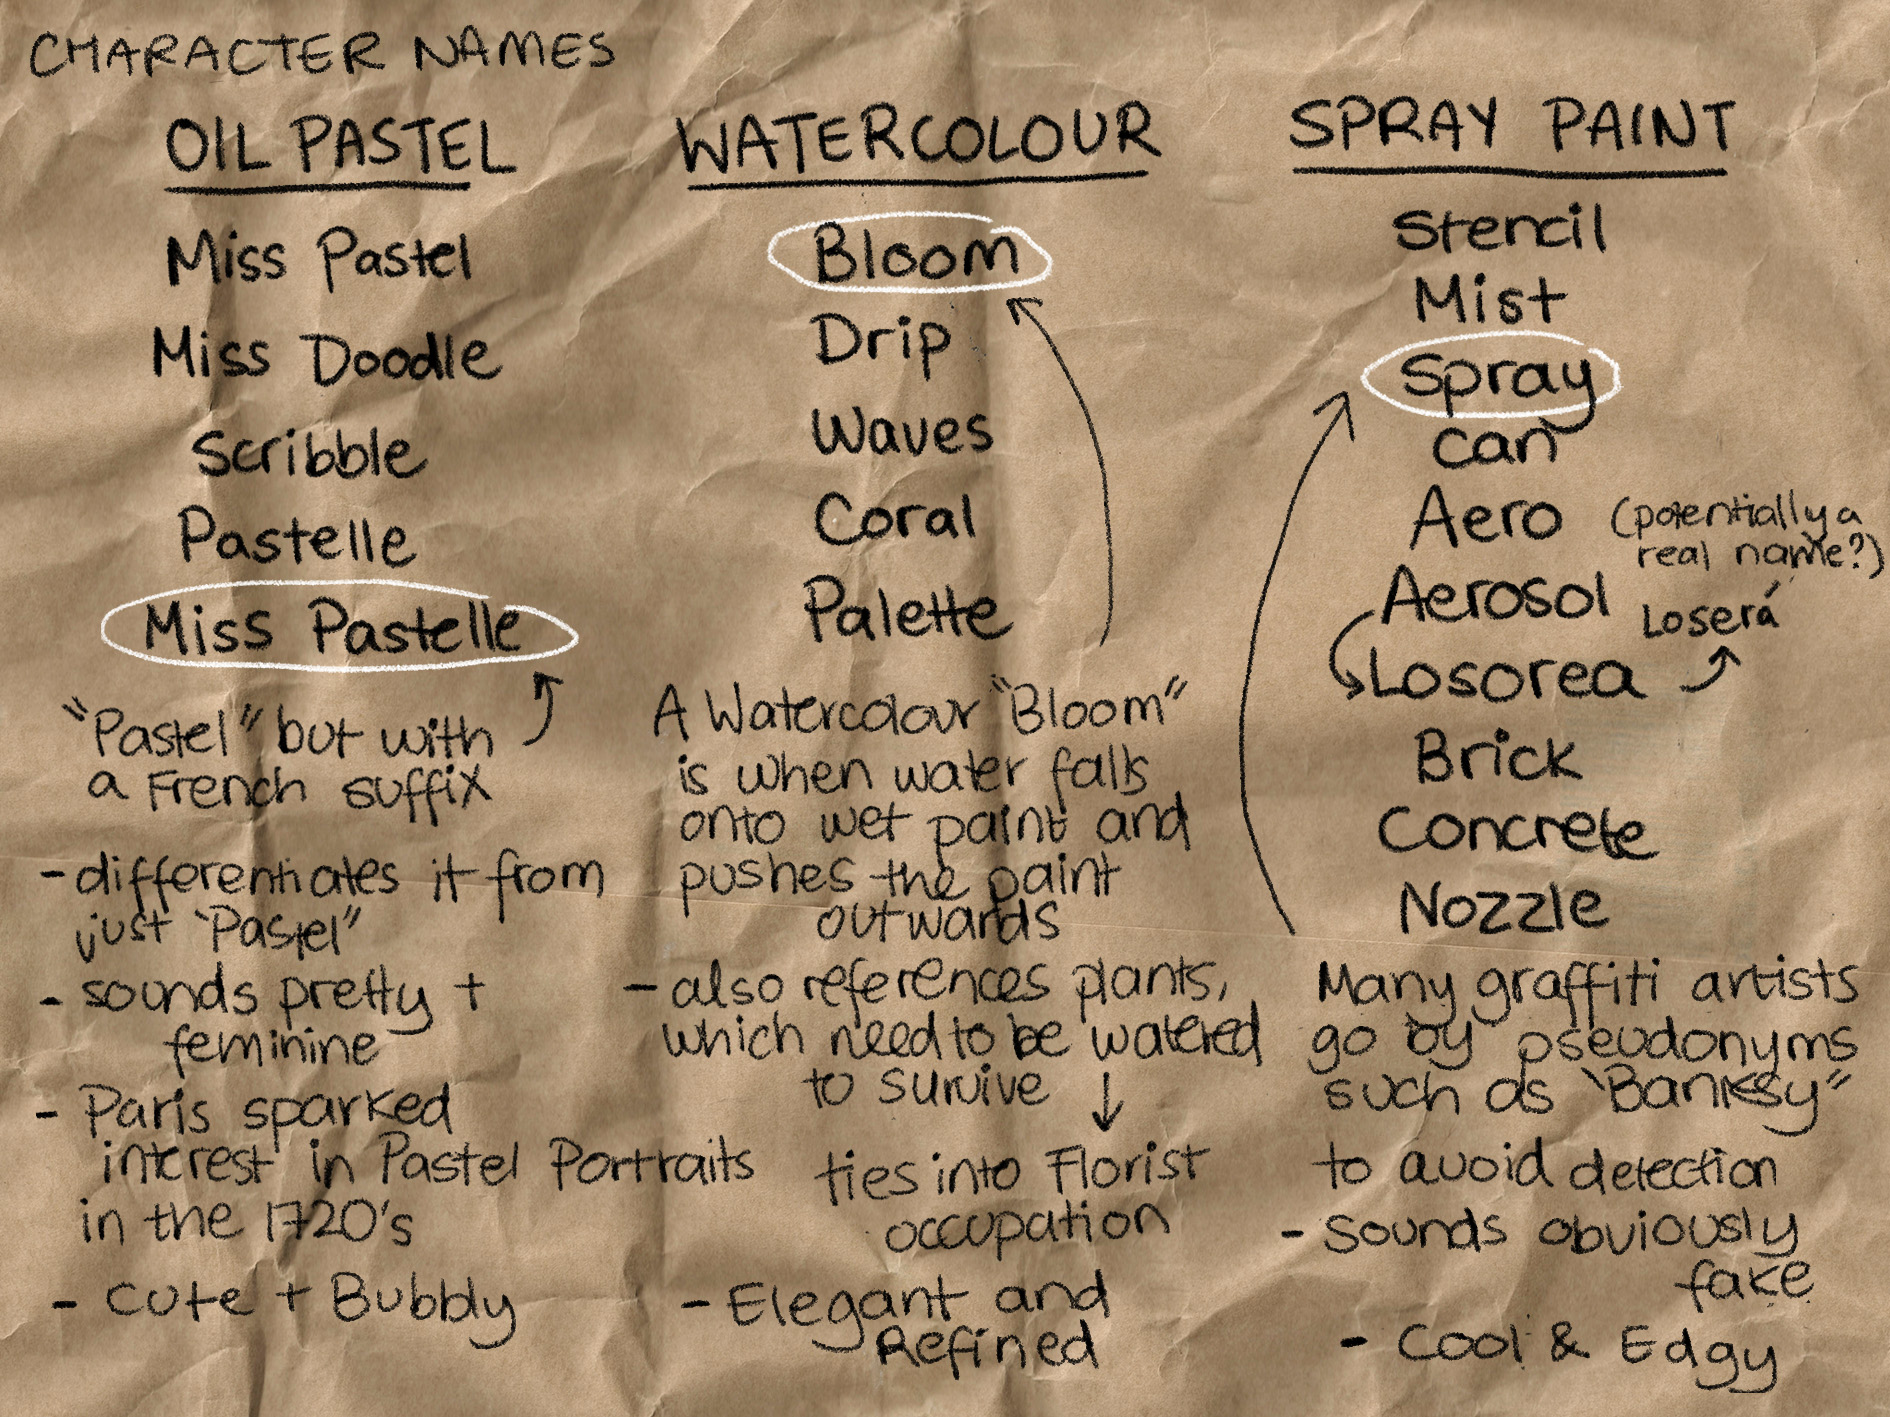 CHARACTER NAMES
OIL PASTEL
Miss Pastel
Miss Doodle
Scribble
Pastelle
Miss Pastelle
"Pastel" but with
a French suffix
- differentiates it from
just "Pastel"
- sounds pretty +
feminine
- Paris sparked
interest in Pastel Portraits
in the 1720's
- Cute + Bubbly
WATERCOLOUR
Bloom
Drip
Waves
Coral
Palette
A Watercolour "Bloom"
is when water falls
onto wet paint and
pushes the paint
outwards
- also references plants,
which need to be watered
to survive ↓
ties into Florist
occupation
- Elegant and
Refined
SPRAY PAINT
Stencil
Mist
Spray
Can
Aero (potentially a
real name?)
Aerosol
Loserá
Losorea
Brick
Concrete
Nozzle
Many graffiti artists
go by pseudonyms
such as "Banksy"
to avoid detection
- Sounds obviously
fake
- Cool & Edgy